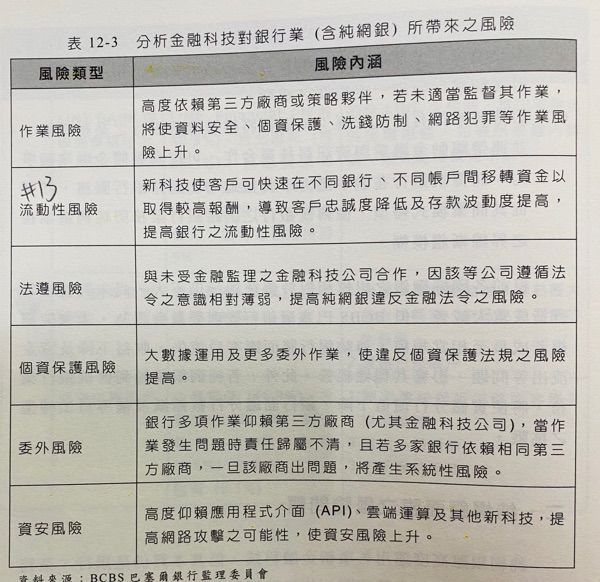 表 12-3 分析金融科技對銀行業 (含純網銀) 所帶來之風險
風險類型
風險內涵
作業風險
高度依賴第三方廠商或策略夥伴，若未適當監督其作業，
將使資料安全、個資保護、洗錢防制、網路犯罪等作業風
險上升。
#13
流動性風險
新科技使客戶可快速在不同銀行、不同帳戶間移轉資金以
取得較高報酬，導致客戶忠誠度降低及存款波動度提高，
提高銀行之流動性風險。
法遵風險
與未受金融監理之金融科技公司合作，因該等公司遵循法
令之意識相對薄弱，提高純網銀違反金融法令之風險。
個資保護風險
大數據運用及更多委外作業，使違反個資保護法規之風險
提高。
委外風險
銀行多項作業仰賴第三方廠商 (尤其金融科技公司)，當作
業發生問題時責任歸屬不清，且若多家銀行依賴相同第三
方廠商，一旦該廠商出問題，將產生系統性風險。
資安風險
高度仰賴應用程式介面 (API)、雲端運算及其他新科技，提
高網路攻擊之可能性，使資安風險上升。
資料來源：BCBS 巴塞爾銀行監理委員會